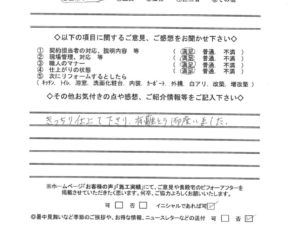 ◇以下の項目に関するご意見、ご感想をお聞かせ下さい◇
① 契約担当者の対応、説明内容 等 （ 満足 普通 不満 ）
② 現場管理、対応 等 （ 満足 普通 不満 ）
③ 職人のマナー （ 満足 普通 不満 ）
④ 仕上がりの状態 （ 満足 普通 不満 ）
⑤ 次にリフォームするとしたら
（ キッチン、トイレ、浴室、洗面化粧台、内装、カーポート、外構、白アリ、改築、増改築 ）
◇その他お気付きの点や感想、ご紹介情報等をご記入下さい◇
きっちり仕上て下さり、有難とう御座いました。
※ホームページ「お客様の声」「施工実績」にて、ご意見や貴殿宅のビフォーアフターを
掲載させていただきたく思います。何卒、ご協力よろしくお願いいたします。
可 □ イニシャルであれば可 □
◎暑中見舞いなど季節のご挨拶や、お得な情報、ニュースレターなどの送付 可 □ 否 □